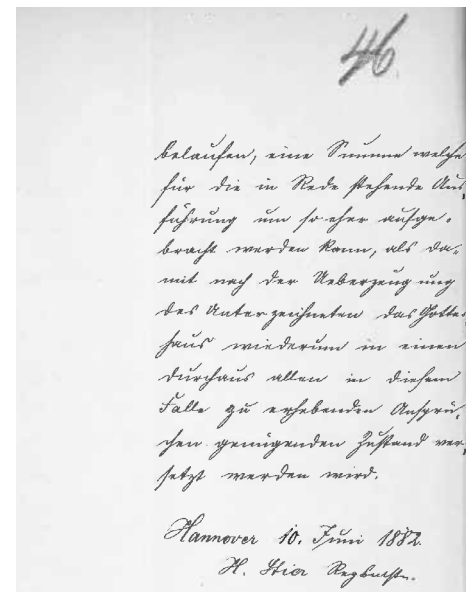 46.
belaufen, eine Summe welche
für die in Rede stehende Aus,
führung um so eher aufge-
bracht werden kann, als da-
mit nach der Ueberzeugung
des Unterzeichneten das Gottes
haus wiederum in einen
durchaus allen in diesem
Falle zu erhebenden Ansprü-
chen genügenden Zustand ver,
setzt werden wird.
Hannover 10. Juni 1882.
H. Stier Regbmstr.